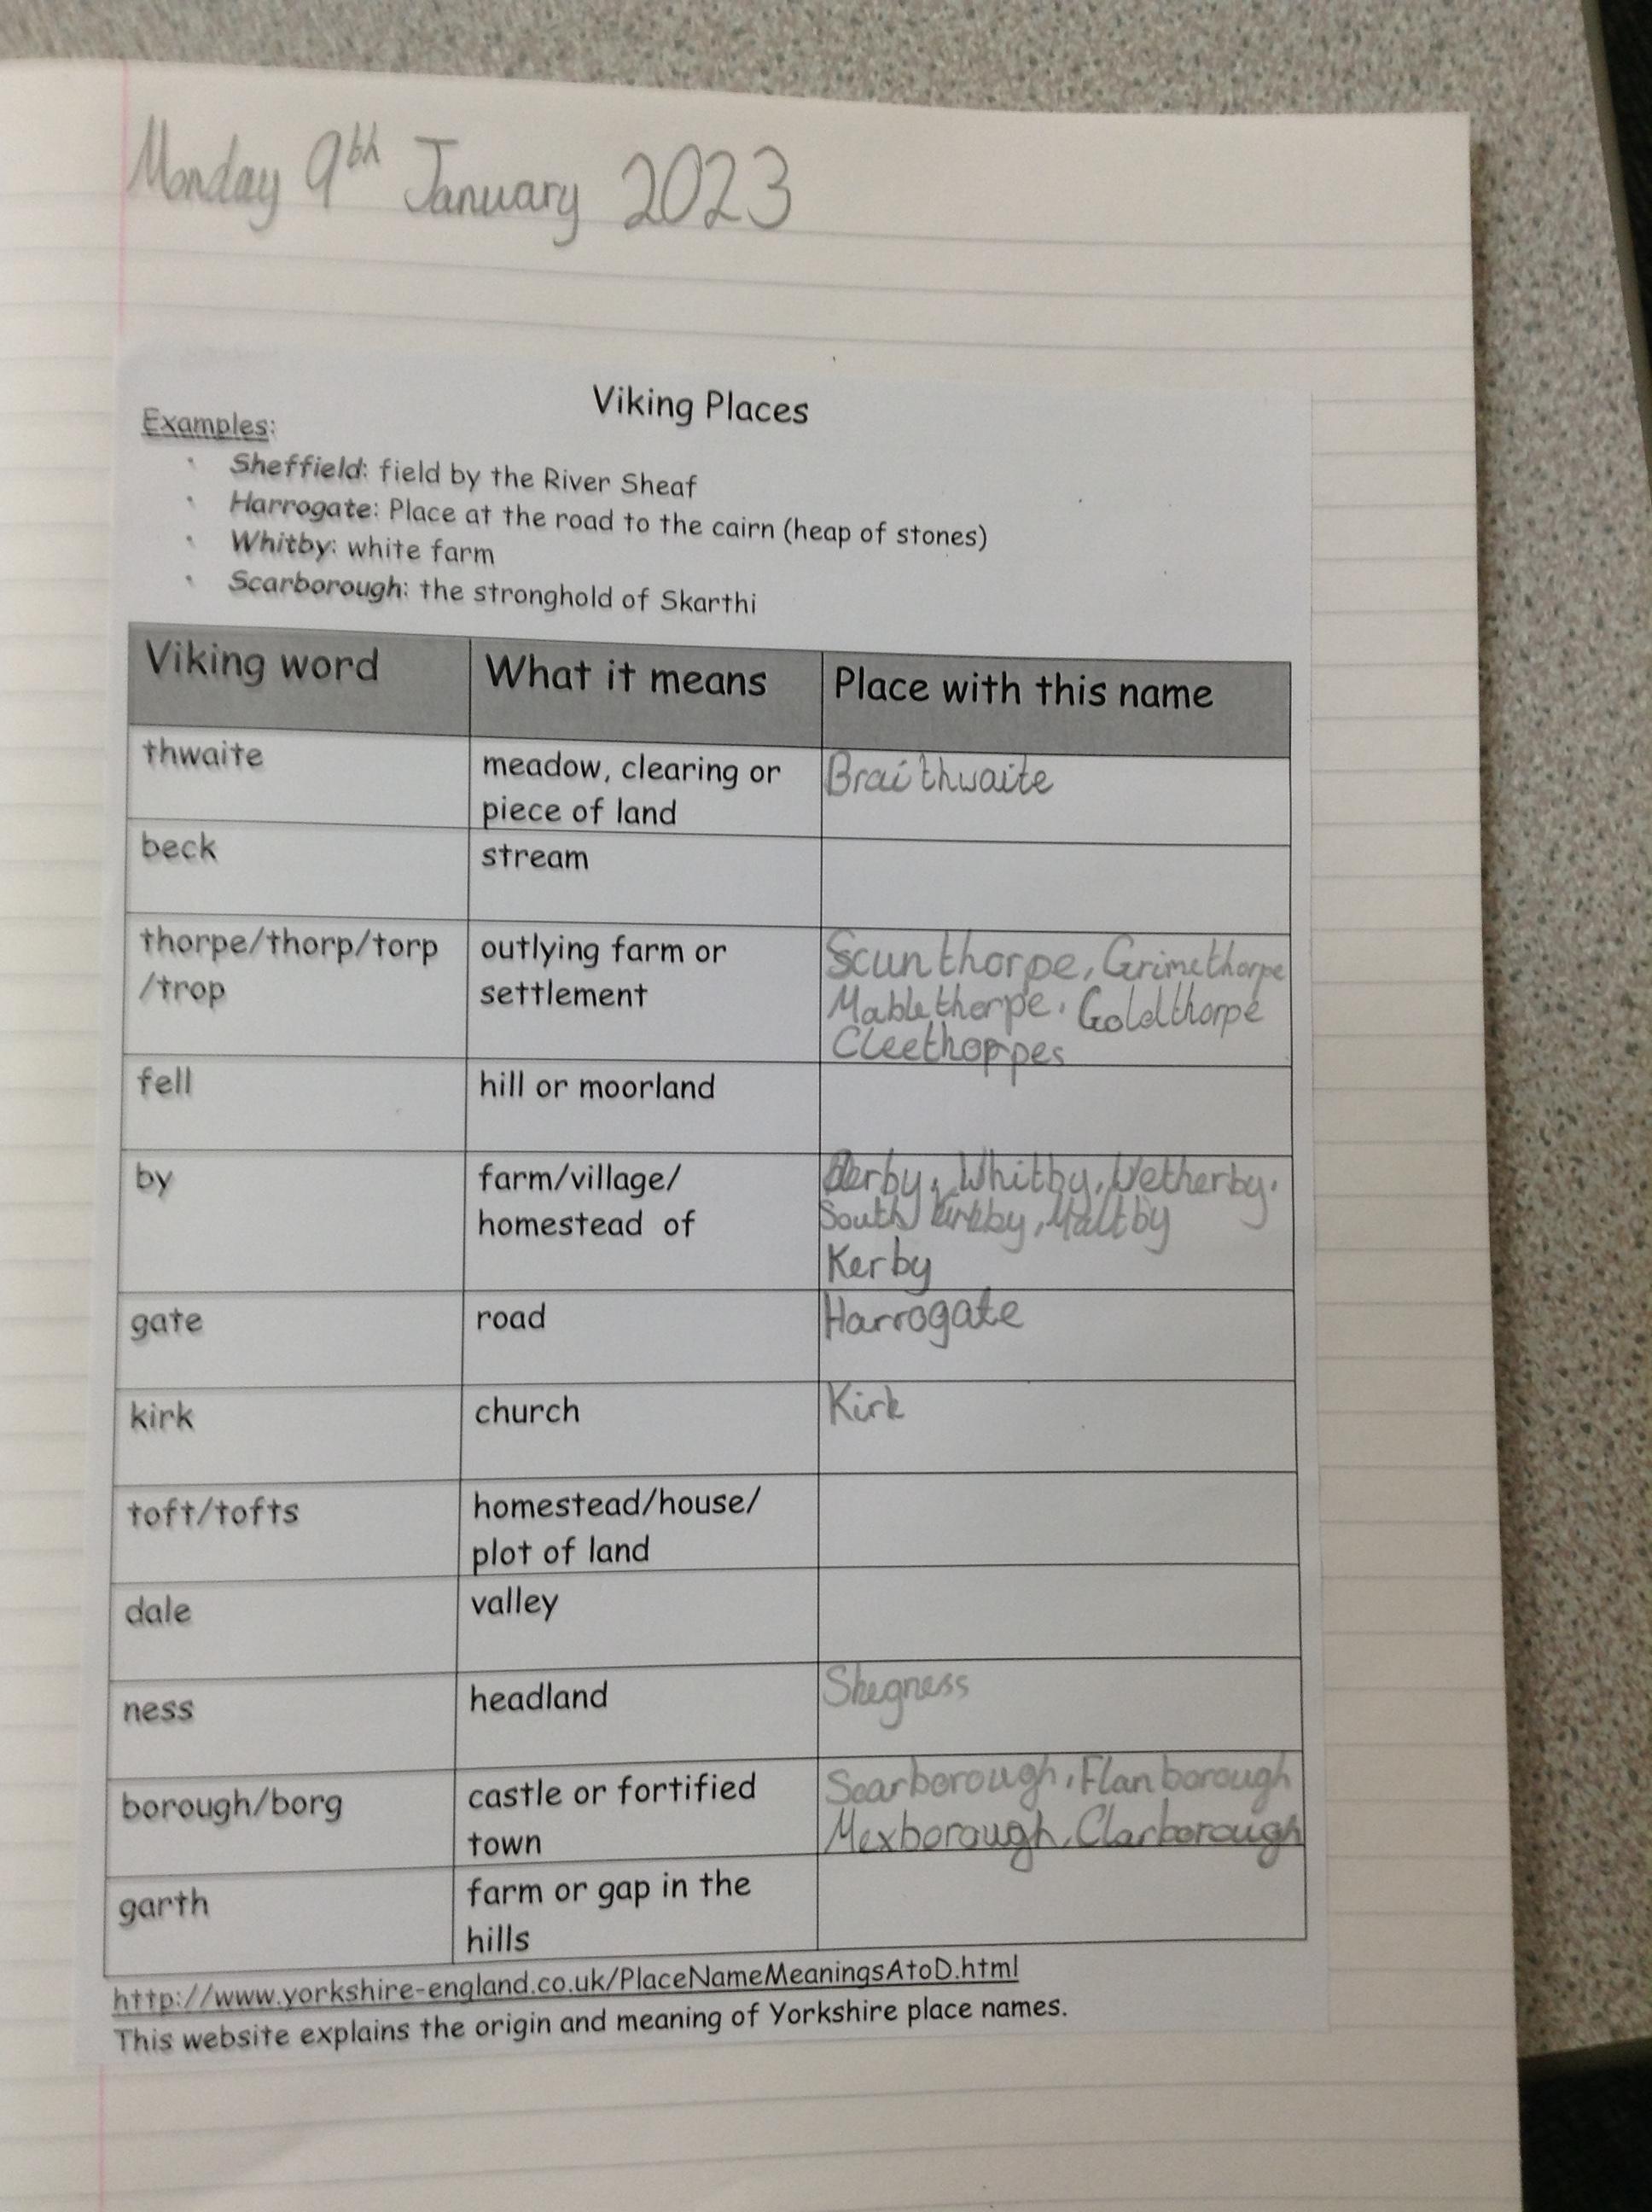 Monday 9th January 2023
Viking Places
Examples:
Sheffield: field by the River Sheaf
Harrogate: Place at the road to the cairn (heap of stones)
Whitby: white farm
Scarborough: the stronghold of Skarthi
Viking word What it means Place with this name
thwaite meadow, clearing or Braithwaite
piece of land
beck stream
thorpe/thorp/torp outlying farm or Scunthorpe, Grimethorpe
/trop settlement Mablethorpe, Goldthorpe
Cleethorpes
fell hill or moorland
by farm/village/ Derby, Whitby, Wetherby,
homestead of South Kirkby, Maltby
Kerby
gate road Harrogate
kirk church Kirk
toft/tofts homestead/house/
plot of land
dale valley
ness headland Skegness
borough/borg castle or fortified Scarborough, Flanborough
town Mexborough, Clarborough
garth farm or gap in the
hills
http://www.yorkshire-england.co.uk/PlaceNameMeaningsAtoD.html
This website explains the origin and meaning of Yorkshire place names.